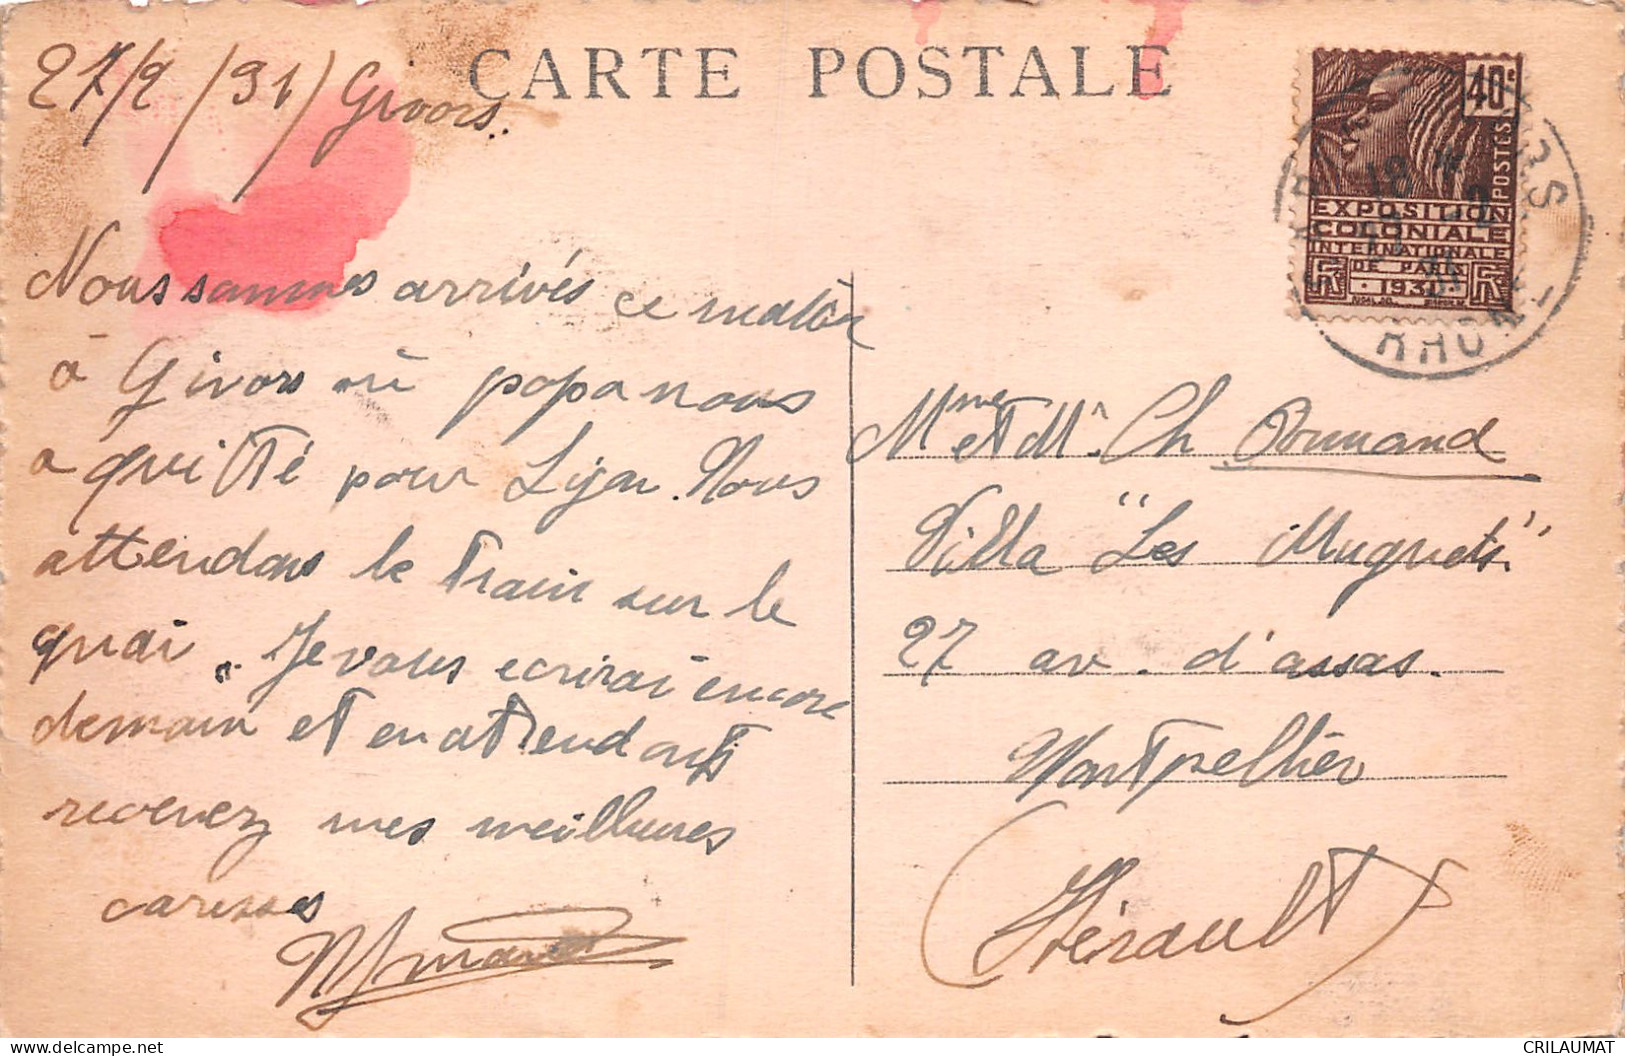 CARTE POSTALE
27/2/31) Givors..
Nous sommes arrivés ce matin
à Givors où papa nous
a quitté pour Lyon. Nous
attendons le train sur le
quai. Je vous ecrirai encore
demain et en attendant
recevez mes meilleures
caresses
40c
POSTES
EXPOSITION
COLONIALE
INTERNATIONALE
DE PARIS
RF 1931 RF
RHONE
Mme et Mr Ch
Villa "Les Muguets"
27 av. d'assas.
Montpellier
(Hérault)
CRILAUMAT